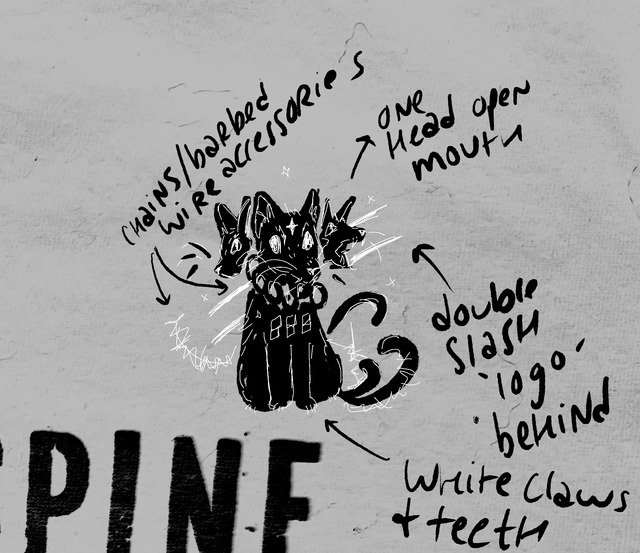 chains/barbed
wire accessories
one
Head open
mouth
double
slash
'logo'
behind
White claws
+ teeth
888
SPINE